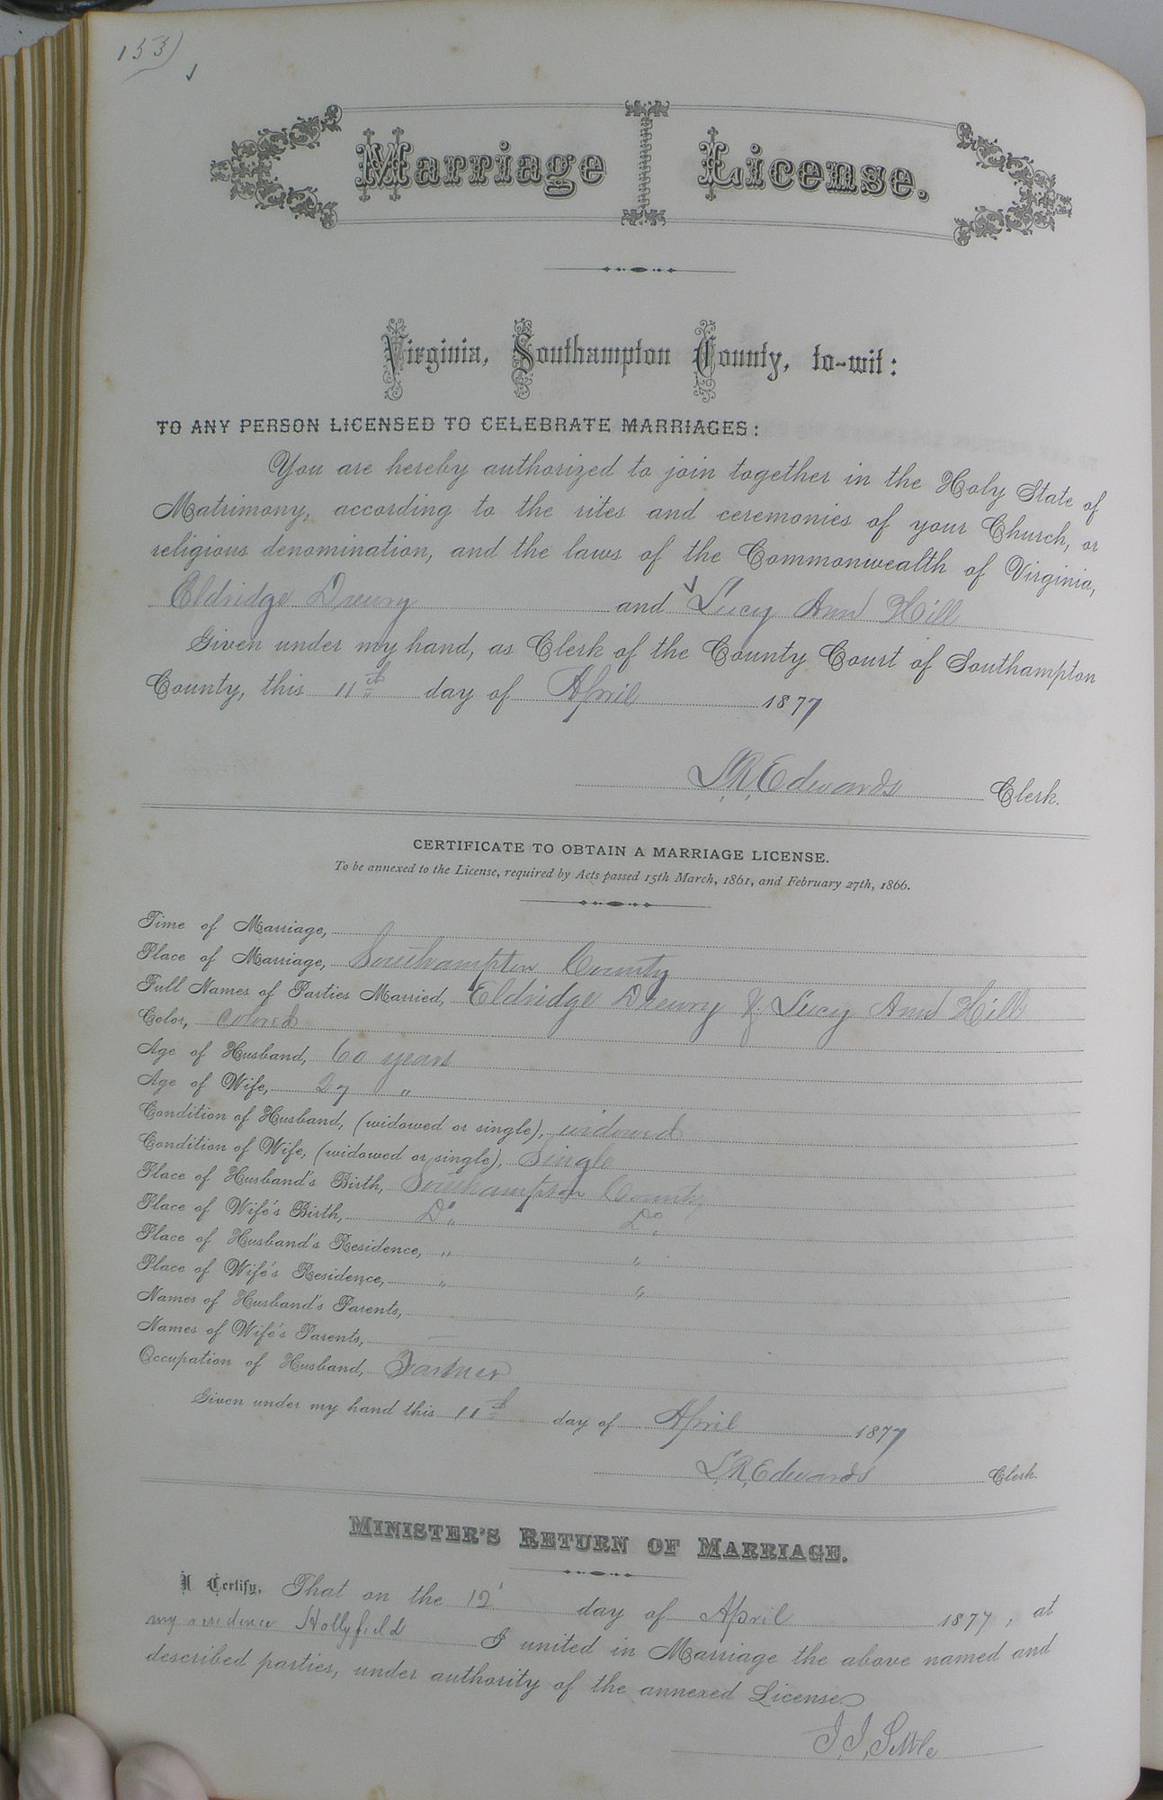 153)
Marriage License.
Virginia, Southampton County, to-wit:
TO ANY PERSON LICENSED TO CELEBRATE MARRIAGES:
You are hereby authorized to join together in the Holy State of
Matrimony, according to the rites and ceremonies of your Church, or
religious denomination, and the laws of the Commonwealth of Virginia,
Eldridge Drewry and Lucy Ann Hill
Given under my hand, as Clerk of the County Court of Southampton
County, this 11th day of April 1877
L.R. Edwards Clerk.
CERTIFICATE TO OBTAIN A MARRIAGE LICENSE.
To be annexed to the License, required by Acts passed 15th March, 1861, and February 27th, 1866.
Time of Marriage,
Place of Marriage, Southampton County
Full Names of Parties Married, Eldridge Drewry & Lucy Ann Hill
Color, Colored
Age of Husband, 60 years
Age of Wife, 27 "
Condition of Husband, (widowed or single), widowed
Condition of Wife, (widowed or single), Single
Place of Husband's Birth, Southampton County
Place of Wife's Birth, Do. Do.
Place of Husband's Residence, " "
Place of Wife's Residence, " "
Names of Husband's Parents,
Names of Wife's Parents,
Occupation of Husband, Farmer
Given under my hand this 11th day of April 1877
L.R. Edwards Clerk.
MINISTER'S RETURN OF MARRIAGE.
I Certify, That on the 12 day of April 1877, at
my residence Hollyfield I united in Marriage the above named and
described parties, under authority of the annexed License.
J. J. Settle